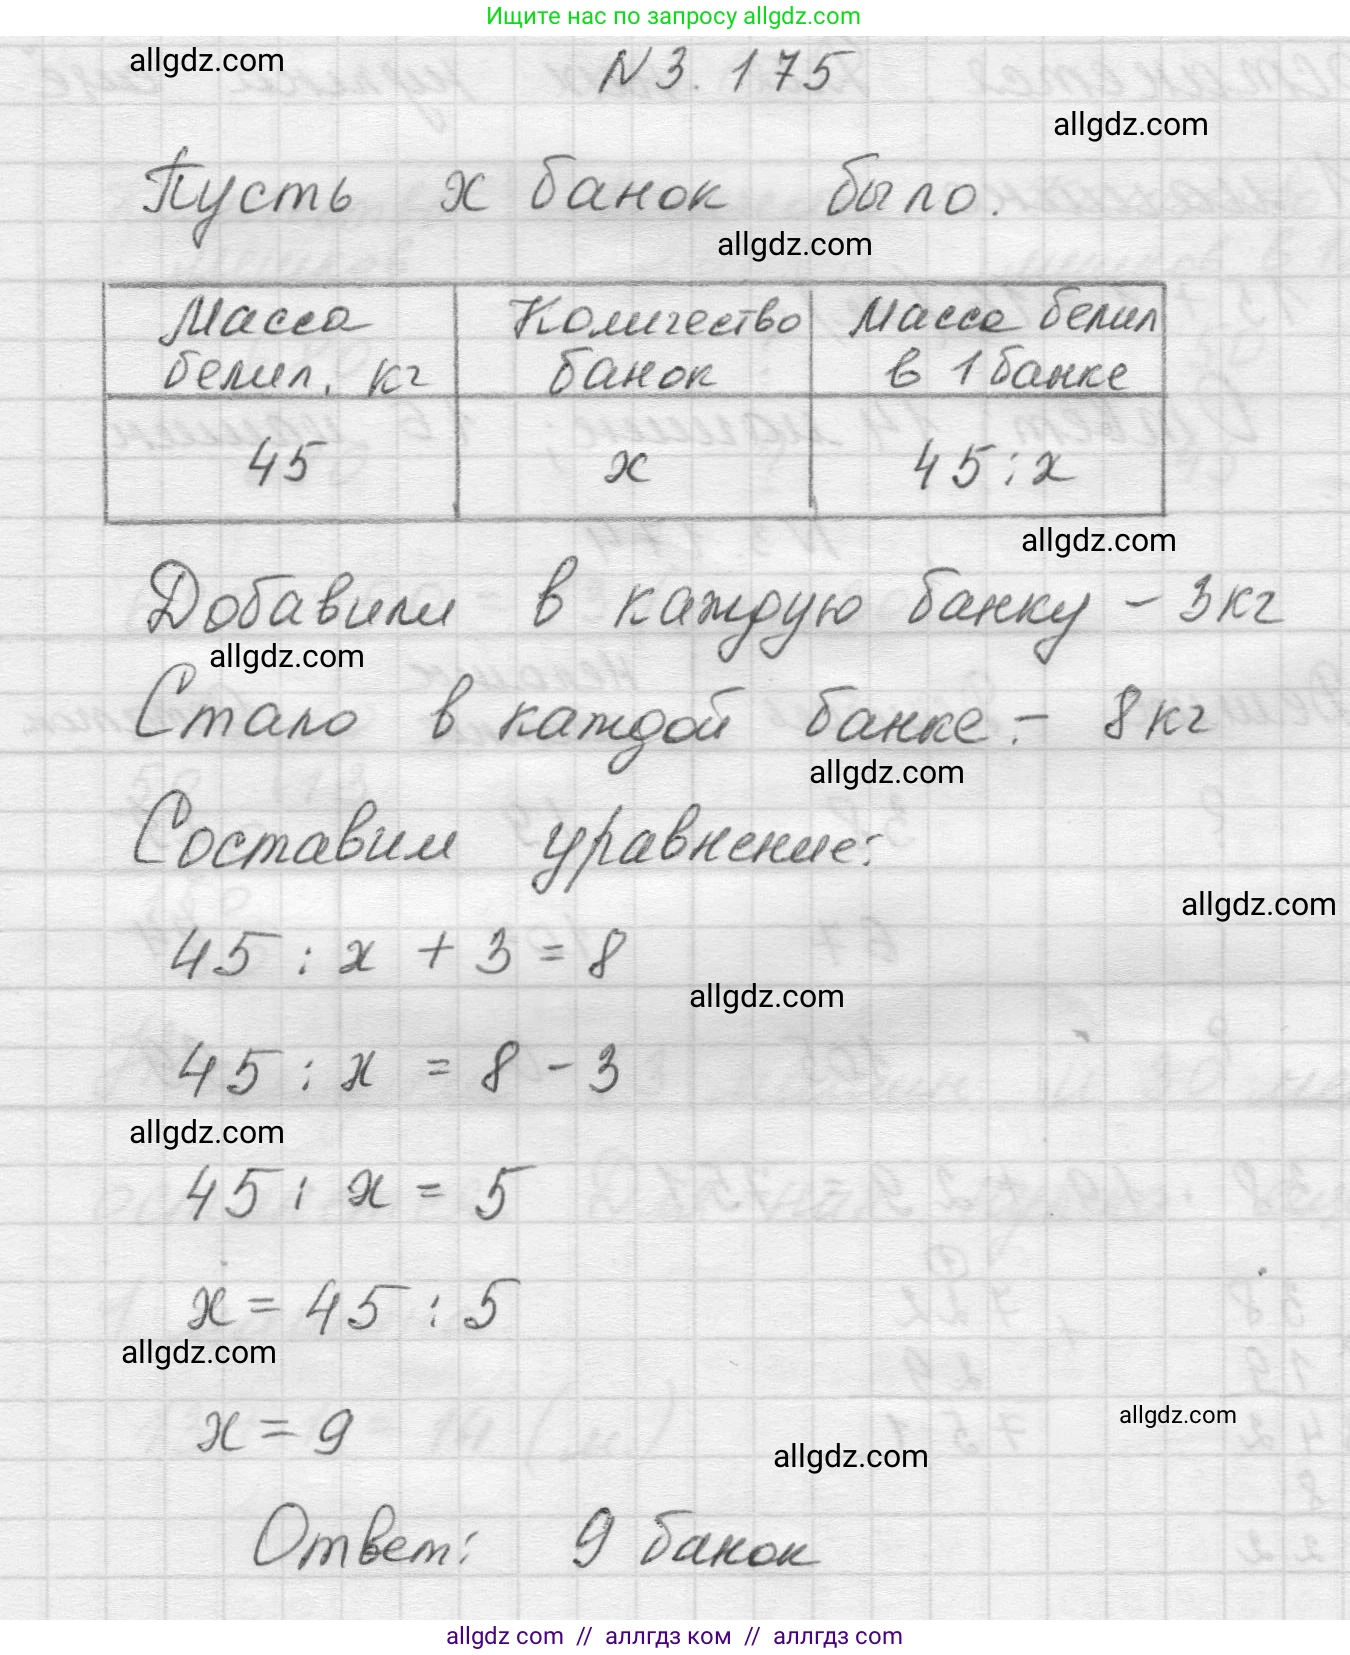 Ищите нас по запросу allgdz.com
allgdz.com
N 3.175
allgdz.com
Пусть x банок было.
allgdz.com
Масса белил, кг
Количество банок
Масса белил в 1 банке
45
x
45 : x
allgdz.com
Добавили в каждую банку – 3 кг
allgdz.com
Стало в каждой банке – 8 кг
allgdz.com
Составим уравнение:
allgdz.com
45 : x + 3 = 8
allgdz.com
45 : x = 8 - 3
allgdz.com
45 : x = 5
x = 45 : 5
allgdz.com
x = 9
allgdz.com
allgdz.com
Ответ: 9 банок
allgdz com // аллгдз ком // аллгдз com